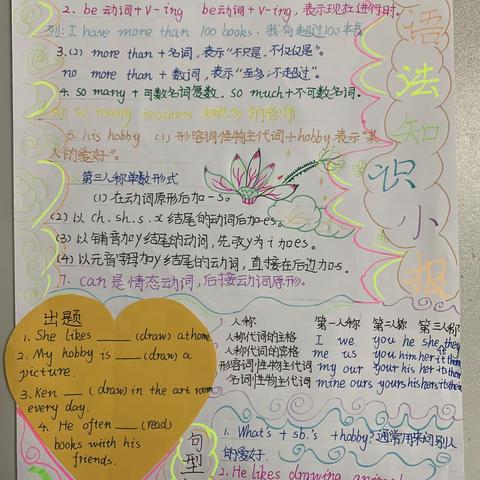 2、be动词+V-ing be动词+V-ing，表示现在进行时。
列：I have more than 100 books. 我有超过100本书
3.(2) more than +名词，表示“不只是，不仅仅是”。
no more than +数词，表示“至多，不超过”。
4. so many + 可数名词复数. so much+不可数名词.
列: so many teachers 如此多的老师
5. his hobby (1) 形容词性物主代词+hobby表示“某
人的爱好”。
第三人称单数形式
(1)在动词原形后加-s。
(2)以ch.sh.s.x结尾的动词后加-es。
(3)以辅音加y结尾的动词，先改y为i加es。
(4)以元音字母加y结尾的动词，直接在后边加s.
7. can是情态动词，后接动词原形。
语法知识小报
出题
1. She likes ____ (draw) at home.
2. My hobby is ____ (draw) a
picture.
3. Ken ___ (draw) in the art room
every day.
4. He often ____ (read)
books with his
friends.
人称 第一人称 第二人称 第三人称
人称代词的主格 I we you he she they
人称代词的宾格 me us you him her it
形容词性物主代词 my our your his her its
名词性物主代词 mine ours yours his hers its
句型
1. What's + sb.'s +hobby? 通常用来问别人
的爱好.
2. He likes drawing